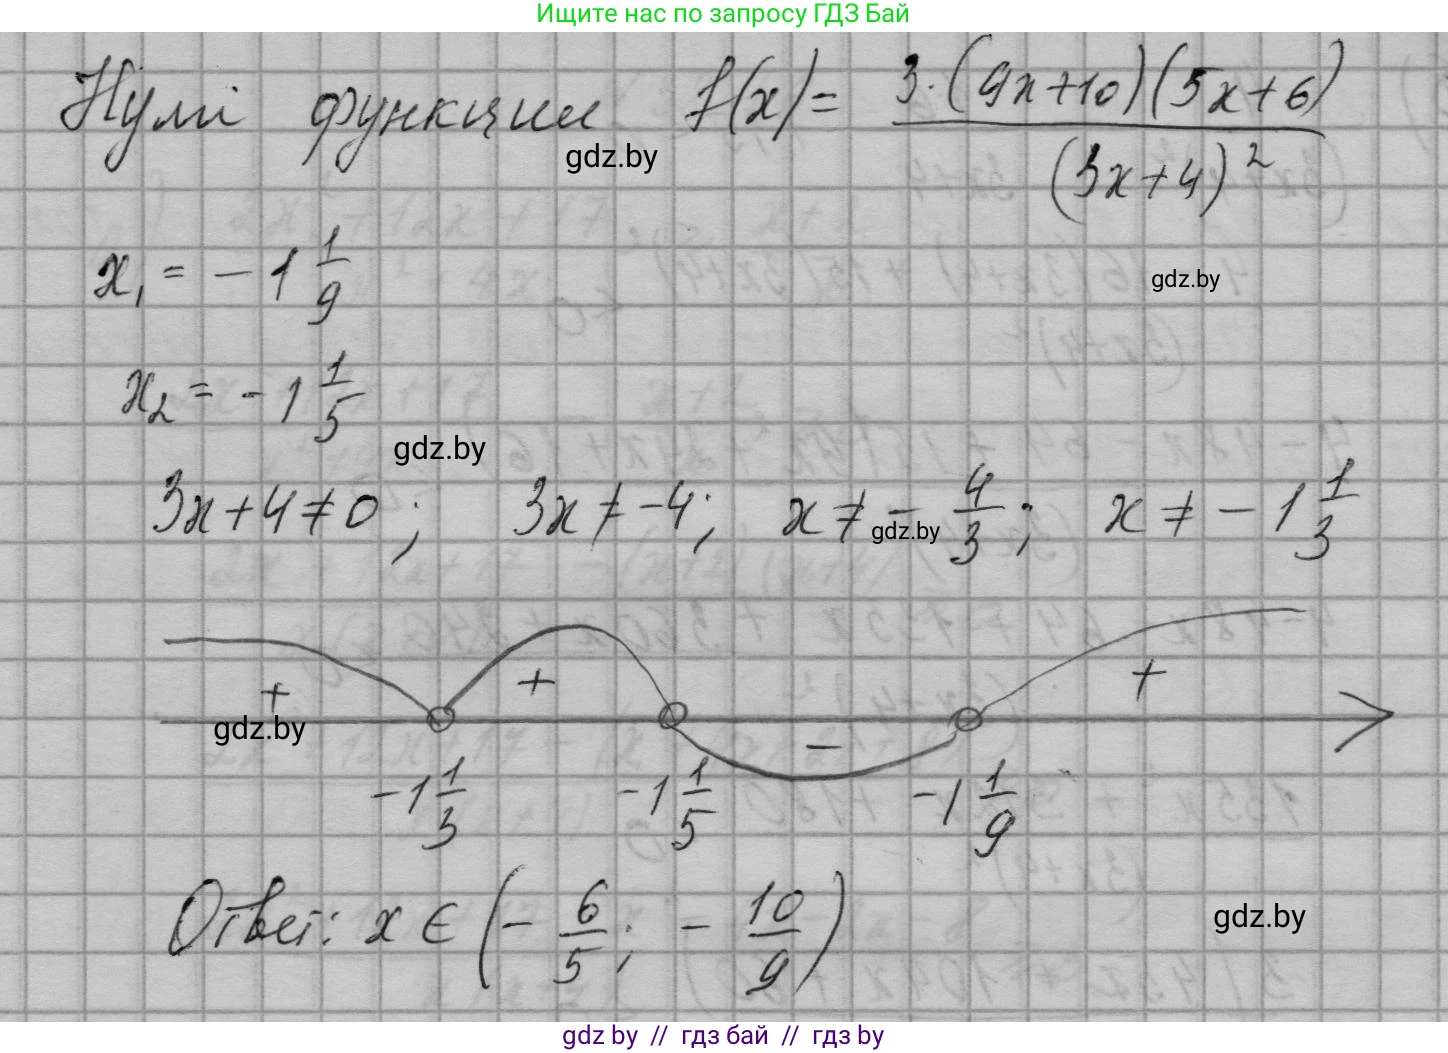 Ищите нас по запросу ГДЗ Бай
Нули функции f(x) = 3·(9x+10)(5x+6) / (3x+4)²
gdz.by
x₁ = −1 1/9
gdz.by
x₂ = −1 1/5
gdz.by
3x+4≠0; 3x≠−4; x≠−4/3; x≠−1 1/3
gdz.by
+ + − +
gdz.by
−1 1/3 −1 1/5 −1 1/9
Ответ: x∈(−6/5; −10/9)
gdz.by
gdz.by // гдз бай // gdz by